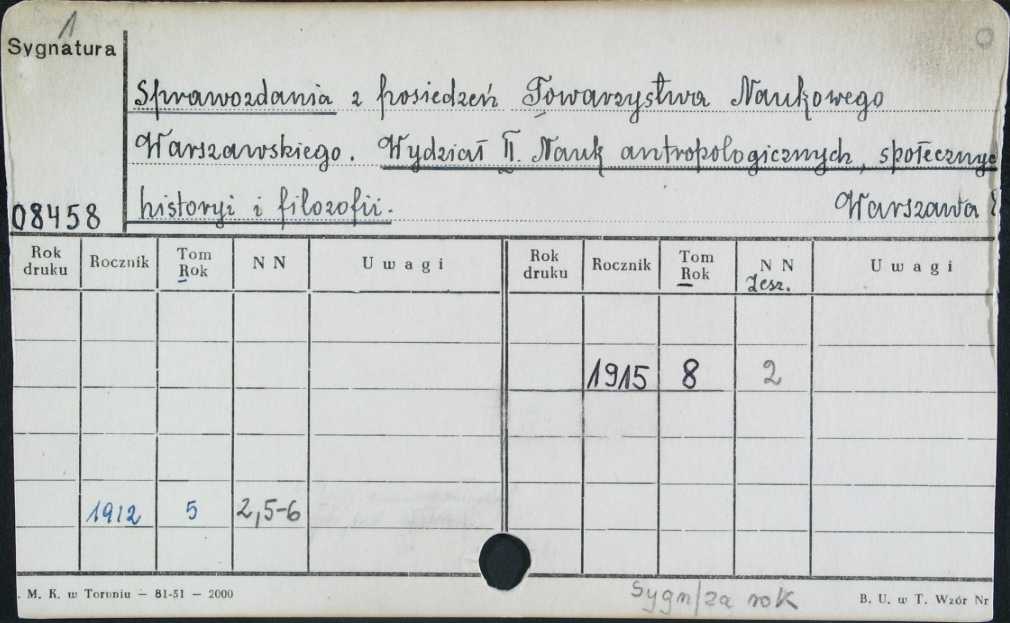 1
Sygnatura
Sprawozdania z posiedzeń Towarzystwa Naukowego
Warszawskiego. Wydział II. Nauk antropologicznych, społecznyc
08458 historyi i filozofii. Warszawa
Rok druku Rocznik Tom Rok N N Uwagi Rok druku Rocznik Tom Rok N N Zesz. Uwagi
1915 8 2
1912 5 2,5-6
Sygn/za rok
. M. K. w Toruniu — 81-51 — 2000 B. U. w T. Wzór Nr